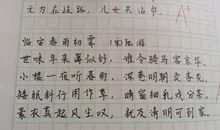 无为在歧路，儿女共沾巾。
临安春雨初霁 (宋)陆游
世味年来薄似纱，谁令骑马客京华。
小楼一夜听春雨，深巷明朝卖杏花。
矮纸斜行闲作草，晴窗细乳戏分茶。
素衣莫起风尘叹，犹及清明可到家。